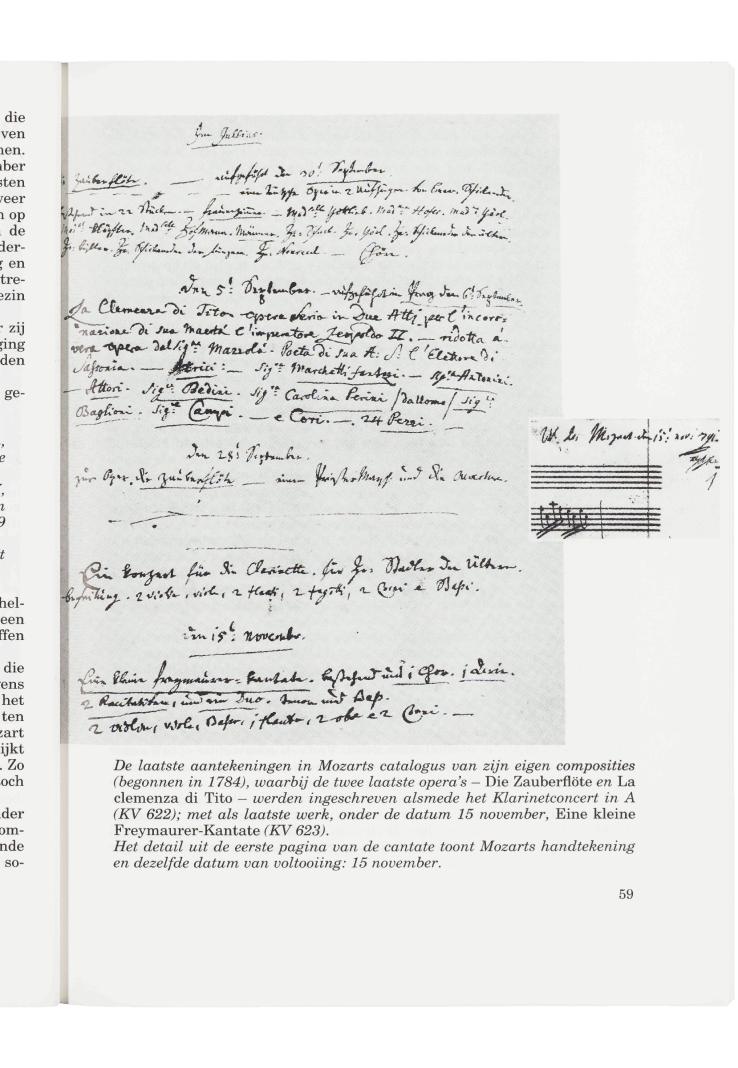 die
ven
nen.
nber
sten
veer
n op
de
der-
g en
tre-
ezin
r zij
ging
den
ge-
,
e
,
n
9
t
hel-
een
ffen
die
ens
het
ten
zart
ijkt
. Zo
och
der
om-
nde
so-
Im Jullius.
Zauberflöte. — aufgeführt den 30t September.
eine teutsche Oper in 2 Aufzügen. von Eman. Schikaneder.
bestehend in 22 Stücken. — frauenzimmer. — Mad:selle Gottlieb. Mad:me Hofer. Mad:me Görl.
Mad:me Klöpfler. Mad:selle Hofmann. Männer. Hr: Schack. Hr: Görl. Hr: Schikaneder der ältere.
Hr: Kistler. Hr: Schikaneder der Jüngere. Hr: Nouseul. — Chöre.
den 5t: September. — aufgeführt in Prag den 6t: September.
La Clemenza di Tito. opera Seria in Due Atti, per l'incoro=
nazione di sua maestà l'imperatore Leopoldo II. — ridotta á
vera opera dal Sigre: Mazzolá. Poeta di sua A: S: l'Elettore di
Sassonia. — Attrici: — Sigra: Marchetti fantozi. — Sigra: Antonini.
— Attori. Sigre: Bedini. Sigra: Carolina Perini / Da uomo / Sigre:
Baglioni. Sigre: Campi. — e Cori. — 24 Pezzi. —
den 28t: September.
zur Oper. die Zauberflöte — einen Priester Marsch und die Ouverture.
Ein konzert für die Clarinette. für Hr: Stadler den ältern.
begleitung. 2 violini, viole, 2 flauti, 2 fagotti, 2 Corni e Baßi.
den 15t: Novembr.
Eine kleine freymaurer=kantate. bestehend aus 1 Chor. 1 Arie.
2 Recitativen, und ein Duo. tenor und Baß.
2 violini, viole, Baßo, 1 flauto, 2 oboe e 2 Corni. —
W. A. Mozart den 15t: nov: 791.
De laatste aantekeningen in Mozarts catalogus van zijn eigen composities
(begonnen in 1784), waarbij de twee laatste opera's – Die Zauberflöte en La
clemenza di Tito – werden ingeschreven alsmede het Klarinetconcert in A
(KV 622); met als laatste werk, onder de datum 15 november, Eine kleine
Freymaurer-Kantate (KV 623).
Het detail uit de eerste pagina van de cantate toont Mozarts handtekening
en dezelfde datum van voltooiing: 15 november.
59